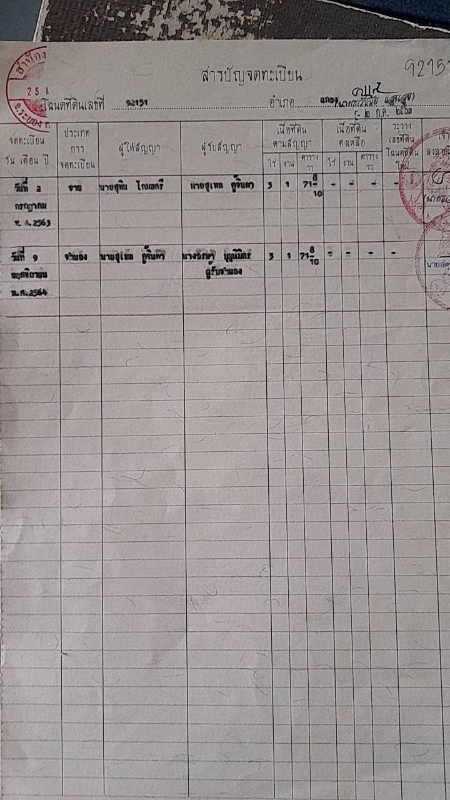 92151
สารบัญจดทะเบียน
โฉนดที่ดินเลขที่ 92151 อำเภอ แกลง
จดทะเบียน วัน เดือน ปี
ประเภท การ จดทะเบียน
ผู้ให้สัญญา
ผู้รับสัญญา
เนื้อที่ดิน ตามสัญญา
ไร่ งาน ตาราง วา
เนื้อที่ดิน คงเหลือ
ไร่ งาน ตาราง วา
ระวาง เลขที่ดิน โฉนดที่ดิน
วันที่ 2 ขาย นายสุทิน นายสุเทพ 3 1 71 8/10 - - - -
กรกฎาคม
พ.ศ.2563
วันที่ ๑ จำนอง นายสุเทพ 3 1 71 8/10 - - - -
พฤศจิกายน ผู้รับจำนอง
พ.ศ.2564